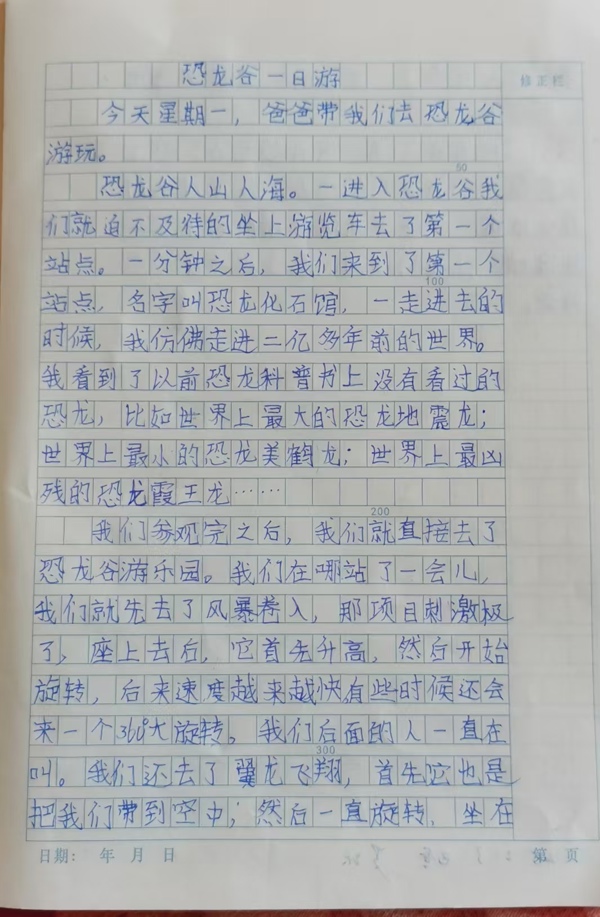 恐龙谷一日游
修正栏
今天星期一，爸爸带我们去恐龙谷
游玩。
50
恐龙谷人山人海。一进入恐龙谷我
们就迫不及待的坐上游览车去了第一个
站点。一分钟之后，我们来到了第一个
100
站点，名字叫恐龙化石馆，一走进去的
时候，我仿佛走进二亿多年前的世界。
我看到了以前恐龙科普书上没有看过的
恐龙，比如世界上最大的恐龙地震龙；
世界上最小的恐龙美鹤龙；世界上最凶
残的恐龙霞王龙……
200
我们参观完之后，我们就直接去了
恐龙谷游乐园。我们在哪站了一会儿，
我们就先去了风暴卷入，那项目刺激极
了，座上去后，它首先升高，然后开始
旋转，后来速度越来越快有些时候还会
来一个360°大旋转。我们后面的人一直在
300
叫。我们还去了翼龙飞翔，首先它也是
把我们带到空中，然后一直旋转，坐在
日期： 年 月 日 第 页